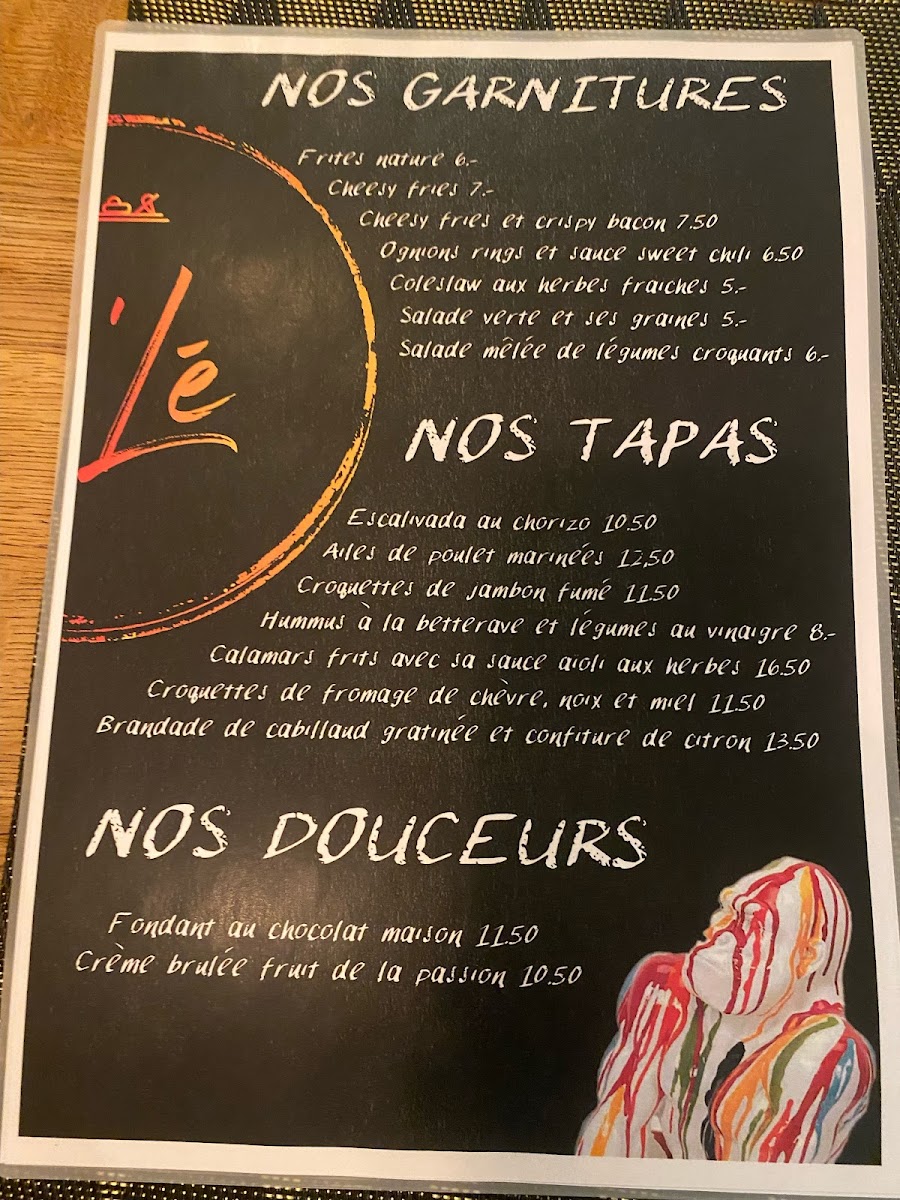 NOS GARNITURES
Frites nature 6.-
Cheesy fries 7.-
Cheesy fries et crispy bacon 7.50
Ognions rings et sauce sweet chili 6.50
Coleslaw aux herbes fraiches 5.-
Salade verte et ses graines 5.-
Salade mêlée de légumes croquants 6.-
'Lé
NOS TAPAS
Escalivada au chorizo 10.50
Ailes de poulet marinées 12.50
Croquettes de jambon fumé 11.50
Hummus à la betterave et légumes au vinaigre 8.-
Calamars frits avec sa sauce aioli aux herbes 16.50
Croquettes de fromage de chèvre, noix et miel 11.50
Brandade de cabillaud gratinée et confiture de citron 13.50
NOS DOUCEURS
Fondant au chocolat maison 11.50
Crème brulée fruit de la passion 10.50